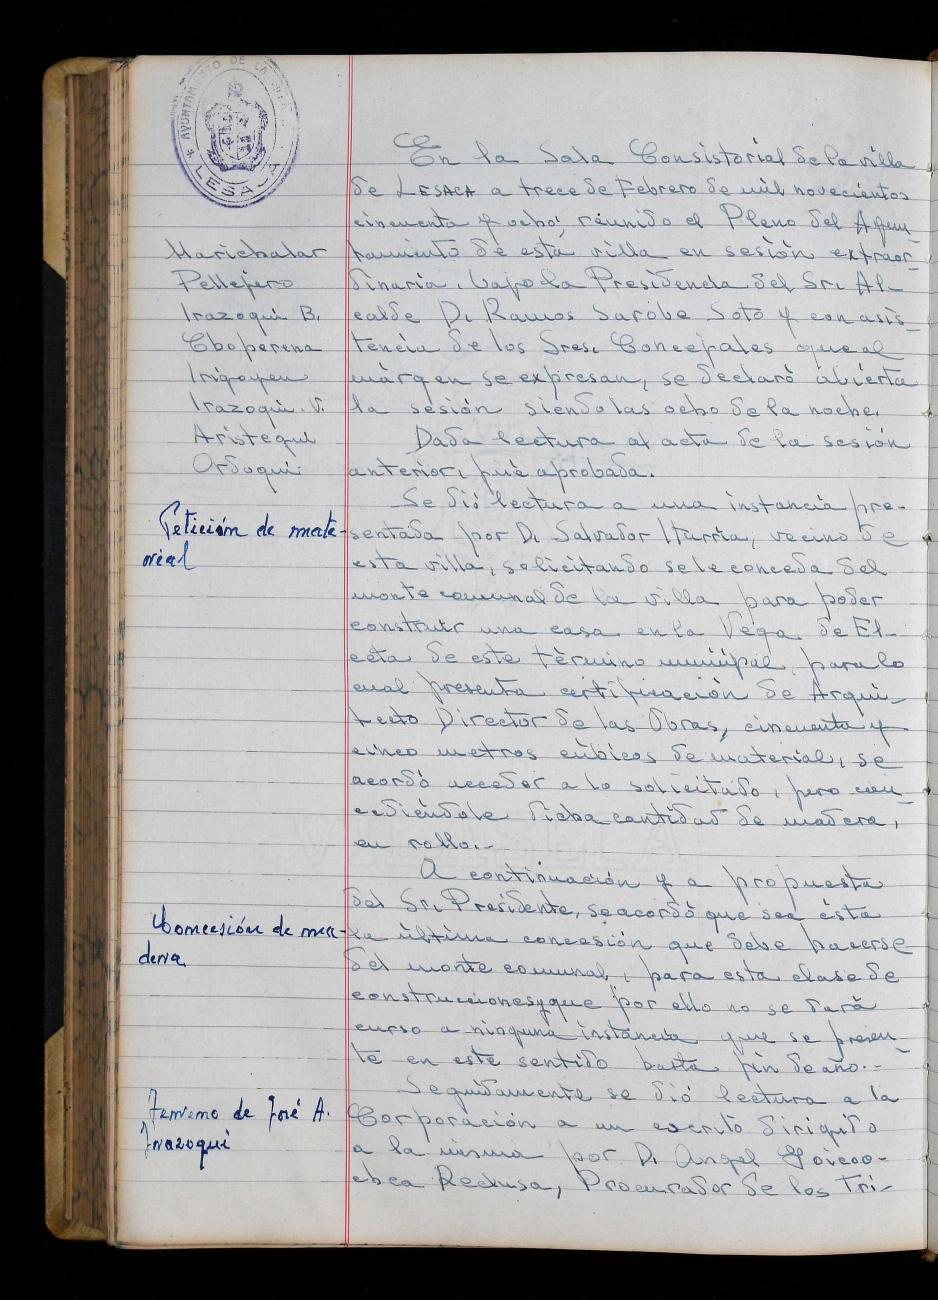 AYUNTAMIENTO DE LA VILLA
LESACA
En la Sala Consistorial de la villa
de LESACA a trece de Febrero de mil novecientos
cincuenta y ocho, reunido el Pleno del Ayun-
tamiento de esta villa en sesión extraor-
dinaria, bajo la Presidencia del Sr. Al-
calde D. Ramos Sarobe Soto y con asis-
tencia de los Sres. Concejales que al
márgen se expresan, se declaró abierta
la sesión siendo las ocho de la noche.
Marichalar
Pellejero
Irazoqui B.
Choperena
Irigoyen
Irazoqui. V.
Aristegui
Ordoqui
Dada lectura al acta de la sesión
anterior, fué aprobada.
Petición de mate-
rial
Se dió lectura a una instancia pre-
sentada por D. Salvador Iturria, vecino de
esta villa, solicitando se le conceda del
monte comunal de la villa para poder
construir una casa en la Vega de El-
ceta de este término municipal, para lo
cual presenta certificación de Arqui-
tecto Director de las Obras, cincuenta y
cinco metros cúbicos de material, se
acordó acceder a lo solicitado, pero con-
cediéndole dicha cantidad de madera,
en rollo.-
Concesión de ma-
dera
A continuación y a propuesta
del Sr. Presidente, se acordó que sea ésta
la última concesión que debe hacerse
del monte comunal, para esta clase de
construcciones y que por ello no se dará
curso a ninguna instancia que se presen-
te en este sentido hasta fin de año.-
Terreno de José A.
Irazoqui
Seguidamente se dió lectura a la
Corporación a un escrito dirigido
a la misma por D. Angel Goicoe-
chea Reclusa, Procurador de los Tri-